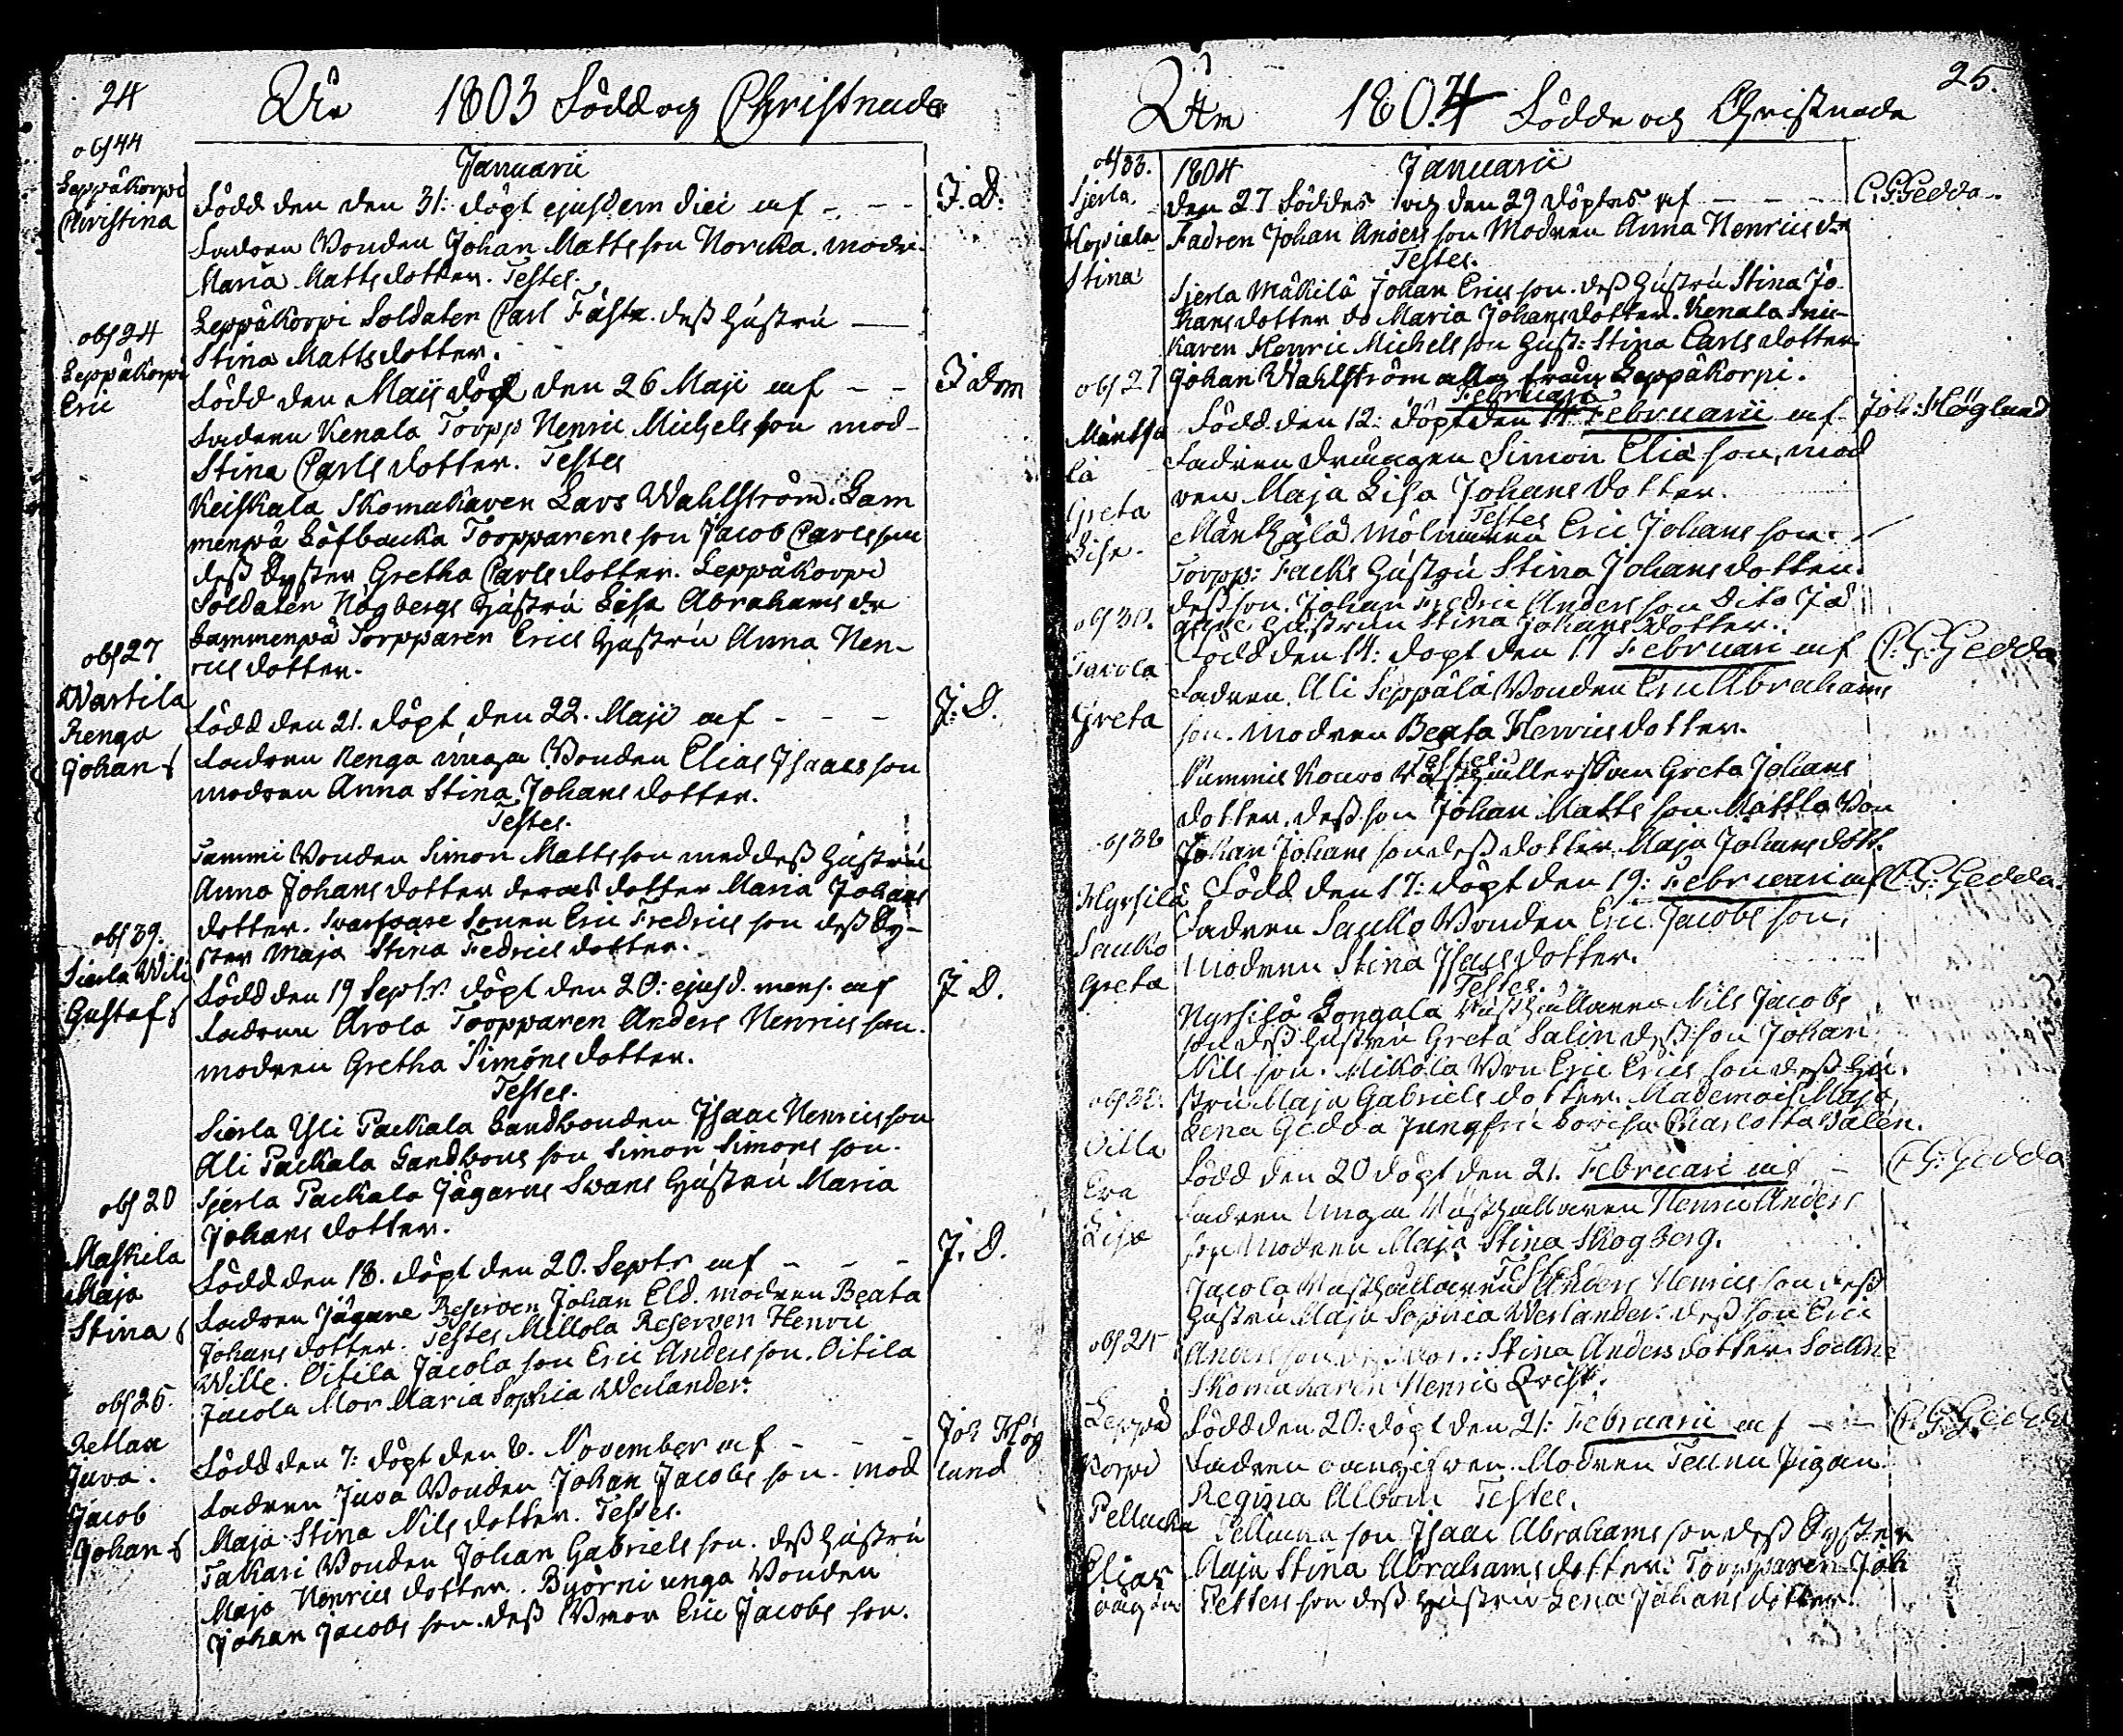 24
1803 Född og Christnade
Januarii
obs 44
Leppäkorpi
Christina
Född den den 31: döpt ejusdem diei af - - -
J. D.
Fadren Bonden Johan Mattsson Norcka. modr.
Maria Matts dotter. Testes.
Leppäkorpi Soldaten Carl Fäste. deß Hustru
Stina Matts dotter.
obs 24
Leppäkorpi
Eric
Född den Maij döpt den 26 Maji af - -
J Dm
Fadren Kenala Torpp Henric Michels son mod-
Stina Carls dotter. Testes
Keiskala Skomakaren Lars Wahlström. Lam
menpä Löfbacka Torpparens son Jacob Carls son
deß Syster Gretha Carls dotter. Leppäkorpi
Soldaten Högbergs Hustru Lisa Abrahams dr
Lammenpä Torpparen Erics Hustru Anna Hen-
rics dotter.
obs 27
Wartila
Renga
Johan
Född den 21. döpt den 22. Maji af - - -
J. D.
Fadren Renga unga Bonden Elias Isaacs son
modren Anna Stina Johans dotter.
Testes.
Tammi Bonden Simon Matts son med deß Hustru
Anna Johans dotter deras dotter Maria Johans
dotter. Sonen Eric Fredrics son deß Sy-
ster Maja Stina Fedrics dotter.
obs 39.
Sierla Wili
Gustaf
Född den 19 Septr. döpt den 20: ejusd. mens. af
J D.
Fadren Arola Torpparen Anders Henrics son.
modren Gretha Simons dotter.
Testes.
Sierla Yli Packala Landbonden Isaac Henrics son
Ali Packala Landbons son Simon Simons son.
Sjerla Packala Jägarns Svans Hustru Maria
Johans dotter.
obs 20
Maskila
Maja
Stina
Född den 18. döpt den 20. Septr af - - -
J. D.
Fadren Jägare Reserven Johan Eld. modren Beata
Johans dotter. Testes Millola Reserven Henric
Wille. Oitila Jacola son Eric Anders son. Oitila
Jacola Mor Maria Sophia Weslander.
obs 25.
Retlax
Juva.
Jacob
Johan
Född den 7: döpt den 8. November af - - -
Joh Hög
lund
Fadren Juva Bonden Johan Jacobs son. mod
Maja Stina Nils dotter. Testes.
Takari Bonden Johan Gabriels son. deß Hustru
Maja Henrics dotter. Byörni unga Bonden
Johan Jacobs son. deß Broor Eric Jacobs son.
25.
1804 Födde og Christnade
obs 33.
Sjerla
Hopiala
Stina
1804 Januarii
den 27 Föddes och den 29 döptes af - - -
C. G. Gedda.
Fadren Johan Anders son Modren Anna Henrics dr
Testes.
Sjerla Mäkilä Johan Erics son. deß Hustru Stina Jo-
hans dotter do Maria Johans dotter. Kenala Snic-
karen Henric Michels son Hust: Stina Carls dotter
Johan Wahlström alla från Leppäkorpi.
obs 27
Mäntsä
lä
Greta
Lisa.
Februari
Född den 12: döpt den 14 Februarii af
Joh: Höglund
Fadren drängen Simon Elia son, mod
ren Maja Lisa Johans dotter.
Testes
Mäntsälä Mölnaren Eric Johans son.
Torpp: Facks Hustru Stina Johans dotter
deß son. Johan Fredric Anders son Dito Jä
gares Hustrun Stina Johans dotter.
obs 30.
Jacola
Greta
Född den 14: döpt den 17 Februari af
C. G. Gedda
Fadren Ali Seppälä Bonden Eric Abrahams
son. Modren Beata Henrics dotter.
Testes
Nummis Kouvo Rusthållerskan Greta Johans
dotter. deß son Johan Matts son Mattla Bon
Johan Johans son deß dotter Maja Johans dott.
obs 32
Hyrsilä
Sauko
Greta
Född den 17: döpt den 19: Februari af
C. G. Gedda.
Fadren Saukko Bonden Eric Jacobs son,
Modren Stina Isacs dotter.
Testes.
Hyrsilä Gongala Rusthållaren Nils Jacobs
son deß Hustru Greta Salin deß son Johan
Nils son. Mikola Bon Eric Erics son deß Hu
stru Maja Gabriels dotter. Mademois Maja
Lena Gedda Jungfru Lovisa Charlotta Walén.
obs 32.
Oitila
Eva
Lisa
Född den 20 döpt den 21. Februari af -
C. G. Gedda
Fadren Unga Rusthållaren Henric Anders
son Modren Maja Stina Skogberg.
Testes
Jacola Rusthållaren Anders Henrics son deß
Hustru Maja Sophia Weslander. deß son Eric
Anders son Stina Anders dotter Sockne
Skomakaren Henric Qvist.
obs 24
Leppä
korpi
Pellacka
Elias
Född den 20: döpt den 21: Februarii af - -
C. G. Gedda
Fadren oangifven. Modren Pigan
Regina Albom Testes.
Pellacka son Isaac Abrahams son deß Syster
Maja Stina Abrahams dotter. Torpparen Joh
Petters son deß Hustru Lena Johans dotter.